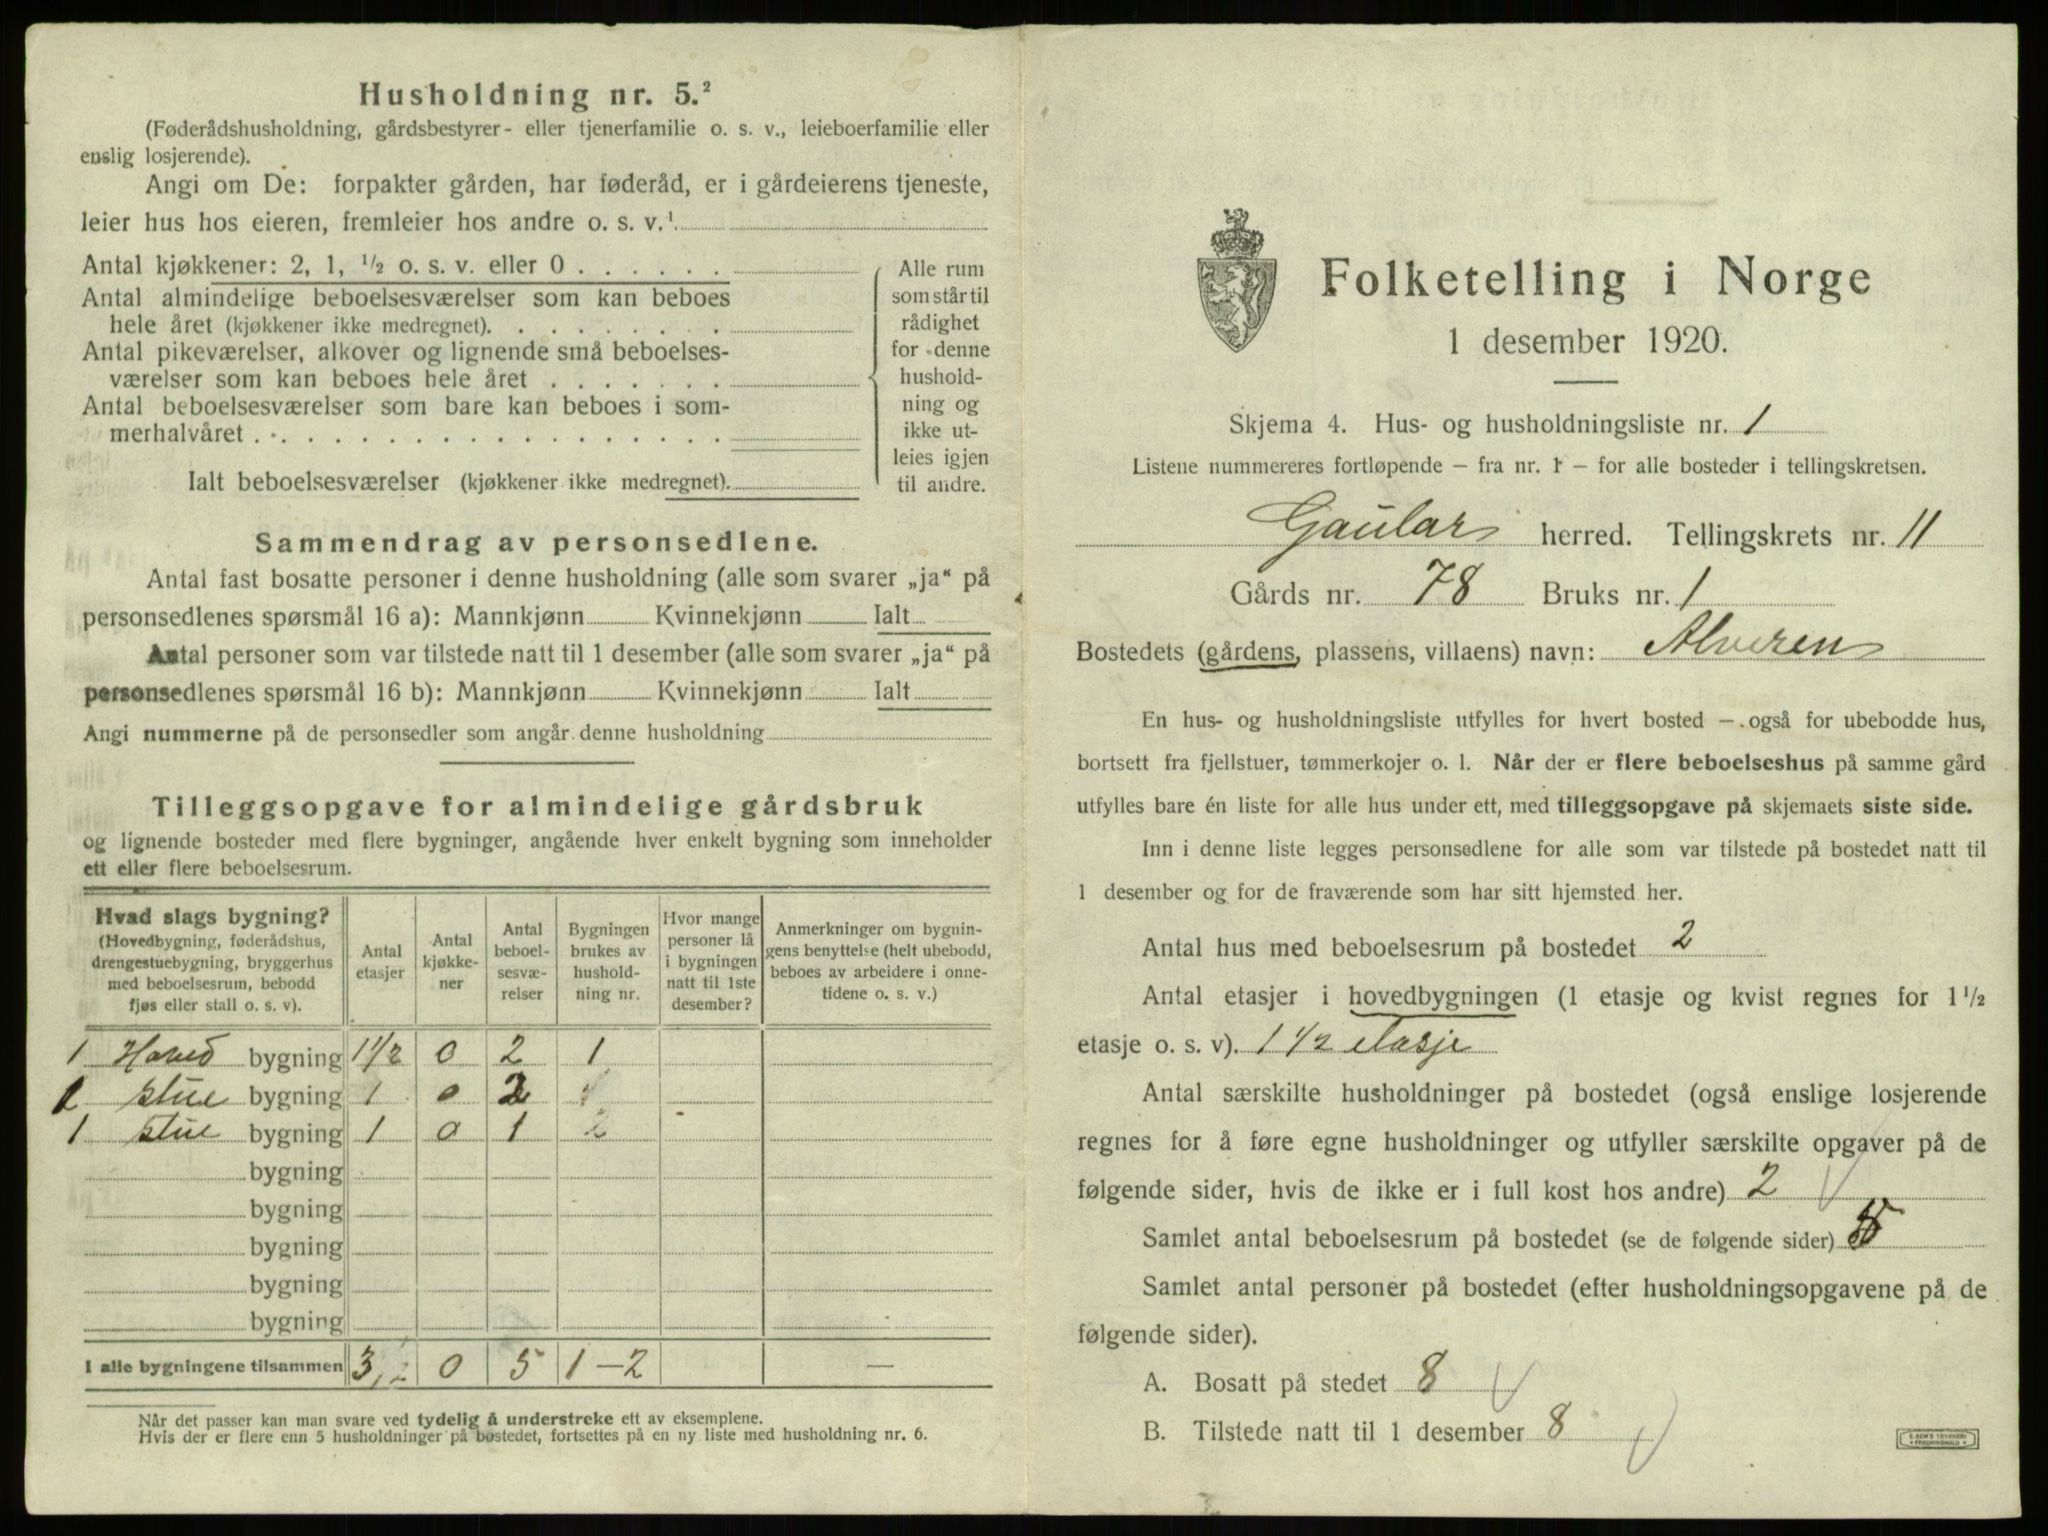 Husholdning nr. 5.²
(Føderådshusholdning, gårdsbestyrer- eller tjenerfamilie o. s. v., leieboerfamilie eller
enslig losjerende).
Angi om De: forpakter gården, har føderåd, er i gårdeierens tjeneste,
leier hus hos eieren, fremleier hos andre o. s. v.¹
Antal kjøkkener: 2, 1, ½ o. s. v. eller 0
Antal almindelige beboelsesværelser som kan beboes
hele året (kjøkkener ikke medregnet).
Antal pikeværelser, alkover og lignende små beboelses-
værelser som kan beboes hele året
Antal beboelsesværelser som bare kan beboes i som-
merhalvåret
Ialt beboelsesværelser (kjøkkener ikke medregnet).
Alle rum
som står til
rådighet
for denne
hushold-
ning og
ikke ut-
leies igjen
til andre.
Sammendrag av personsedlene.
Antal fast bosatte personer i denne husholdning (alle som svarer „ja“ på
personsedlenes spørsmål 16 a): Mannkjønn Kvinnekjønn Ialt
Antal personer som var tilstede natt til 1 desember (alle som svarer „ja“ på
personsedlenes spørsmål 16 b): Mannkjønn Kvinnekjønn Ialt
Angi nummerne på de personsedler som angår denne husholdning
Tilleggsopgave for almindelige gårdsbruk
og lignende bosteder med flere bygninger, angående hver enkelt bygning som inneholder
ett eller flere beboelsesrum.
Hvad slags bygning?
(Hovedbygning, føderådshus,
drengestuebygning, bryggerhus
med beboelsesrum, bebodd
fjøs eller stall o. s. v).
Antal
etasjer
Antal
kjøkke-
ner
Antal
beboel-
sesvæ-
relser
Bygningen
brukes av
hushold-
ning nr.
Hvor mange
personer lå
i bygningen
natt til 1ste
desember?
Anmerkninger om bygnin-
gens benyttelse (helt ubebodd,
beboes av arbeidere i onne-
tidene o. s. v.)
1 Hoved bygning 1 1/2 0 2 1
1 stue bygning 1 0 2
1 stue bygning 1 0 1 2
bygning
bygning
bygning
bygning
bygning
I alle bygningene tilsammen 3 1/2 0 5 1-2 —
Når det passer kan man svare ved tydelig å understreke ett av eksemplene.
Hvis der er flere enn 5 husholdninger på bostedet, fortsettes på en ny liste med husholdning nr. 6.
Folketelling i Norge
1 desember 1920.
Skjema 4. Hus- og husholdningsliste nr. 1
Listene nummereres fortløpende – fra nr. 1 – for alle bosteder i tellingskretsen.
Gaular herred. Tellingskrets nr. 11
Gårds nr. 78 Bruks nr. 1
Bostedets (gårdens, plassens, villaens) navn: Alveren
En hus- og husholdningsliste utfylles for hvert bosted – også for ubebodde hus,
bortsett fra fjellstuer, tømmerkojer o. l. Når der er flere beboelseshus på samme gård
utfylles bare én liste for alle hus under ett, med tilleggsopgave på skjemaets siste side.
Inn i denne liste legges personsedlene for alle som var tilstede på bostedet natt til
1 desember og for de fraværende som har sitt hjemsted her.
Antal hus med beboelsesrum på bostedet 2
Antal etasjer i hovedbygningen (1 etasje og kvist regnes for 1½
etasje o. s. v). 1 1/2 etasje
Antal særskilte husholdninger på bostedet (også enslige losjerende
regnes for å føre egne husholdninger og utfyller særskilte opgaver på de
følgende sider, hvis de ikke er i full kost hos andre) 2
Samlet antal beboelsesrum på bostedet (se de følgende sider) 5
Samlet antal personer på bostedet (efter husholdningsopgavene på de
følgende sider).
A. Bosatt på stedet 8
B. Tilstede natt til 1 desember 8